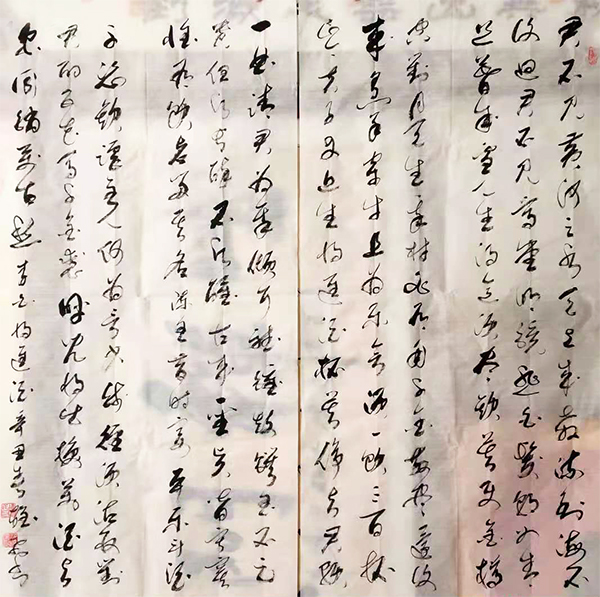 君不见黄河之水天上来奔流到海不
复回君不见高堂明镜悲白发朝如青
丝暮成雪人生得意须尽欢莫使金樽
空对月天生我材必有用千金散尽还复
来烹羊宰牛且为乐会须一饮三百杯
岑夫子丹丘生将进酒杯莫停与君歌
一曲请君为我倾耳听钟鼓馔玉不足
贵但愿长醉不愿醒古来圣贤皆寂寞
惟有饮者留其名陈王昔时宴平乐斗酒
十千恣欢谑主人何为言少钱径须沽取对
君酌五花马千金裘呼儿将出换美酒与
尔同销万古愁 李白将进酒 辛丑春